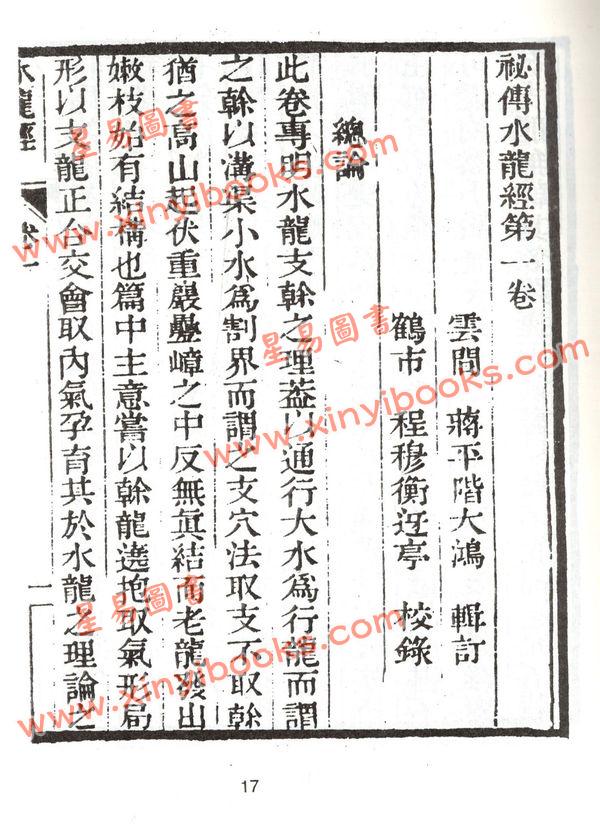 祕傳水龍經第一卷
雲間 蔣平階大鴻 輯訂
鶴市 程穆衡迓亭 校錄
總論
此卷專明水龍支榦之理葢以通行大水爲行龍而謂
之榦以溝渠小水爲割界而謂之支穴法取支不取榦
猶之高山起伏重巖疊嶂之中反無眞結而老龍發出
嫩枝始有結搆也篇中主意嘗以榦龍遶抱取氣形局
形以支龍正台交會取內氣孕育其於水龍之理論之
水龍經 卷一 一
17
星易圖書
www.xinyibooks.com
星易圖書
www.xinyibooks.com
星易圖書
www.xinyibooks.com